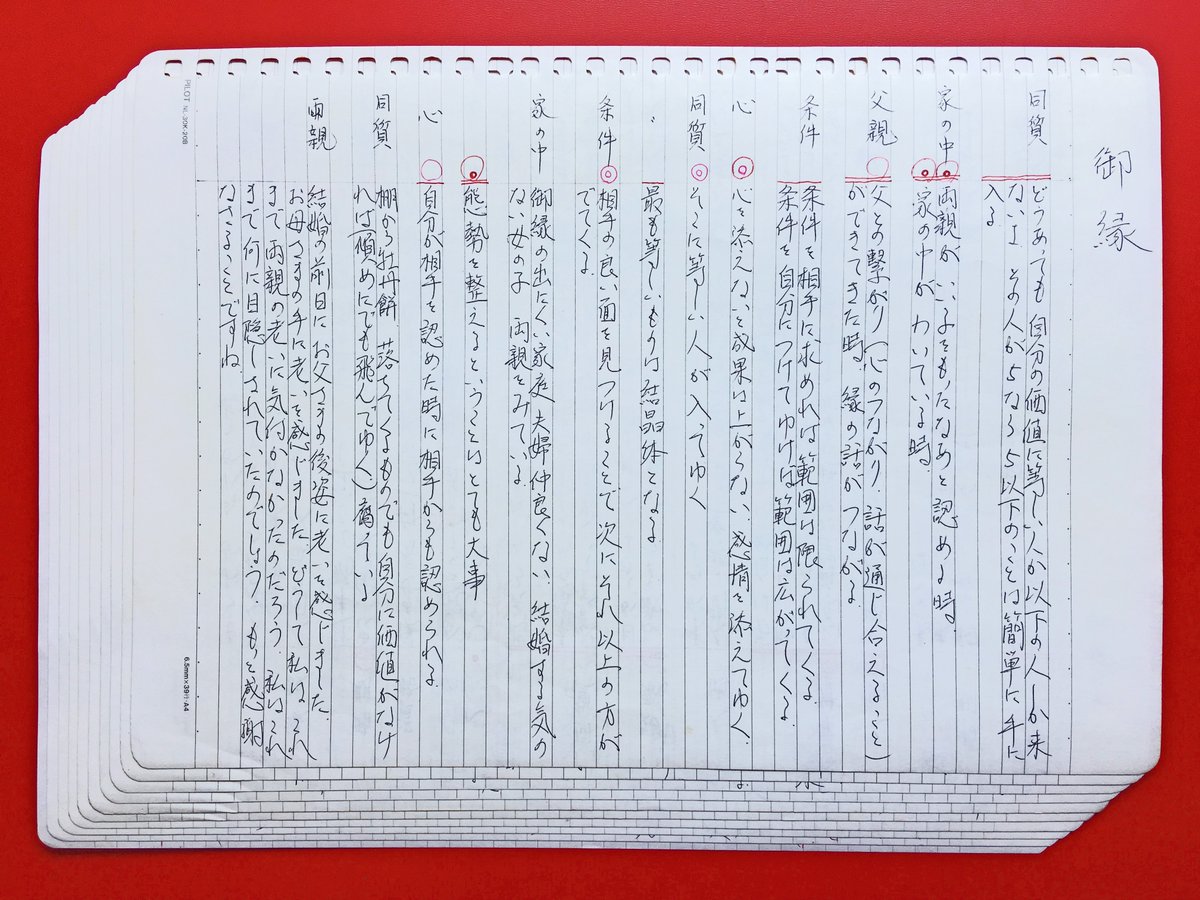 御縁
同質
どうあっても 自分の価値に等しい人か以下の人しか来
ない。 その人が5なら5以下のことは簡単に手に
入る
家の中
両親が いい子をもったなあと認める時。
家の中が わいている時。
父親
父との繋がり(心のつながり.話が通じ合えること)
ができてきた時 縁の話がつながる。
条件
条件を相手に求めれば範囲は限られてくる
条件を自分につけてゆけば範囲は広がってくる
心
心を添えないと成果は上がらない。感情を添えてゆく。
同質
そこに等しい人が入ってゆく
〃
最も等しいものは結晶体となる
条件
相手の良い面を見つけることで次にそれ以上の方が
でてくる。
家の中
御縁の出にくい家庭 夫婦仲良くない、結婚する気の
ない女の子 両親をみている。
態勢を整えるということはとても大事
心
自分が相手を認めた時に相手からも認められる。
同質
棚から牡丹餅 落ちてくるものでも自分に価値がなけ
れば傾めにでも飛んでゆく)腐っている
両親
結婚の前日に お父さまの後姿に老いを感じました.
お母さまの手に老いを感じました どうして私は これ
まで両親の老いに気付かなかったのだろう 私はこれ
まで何に目隠しされていたのでしょう. もっと感謝
なさることですね
PILOT
6.5mm×39行 A4